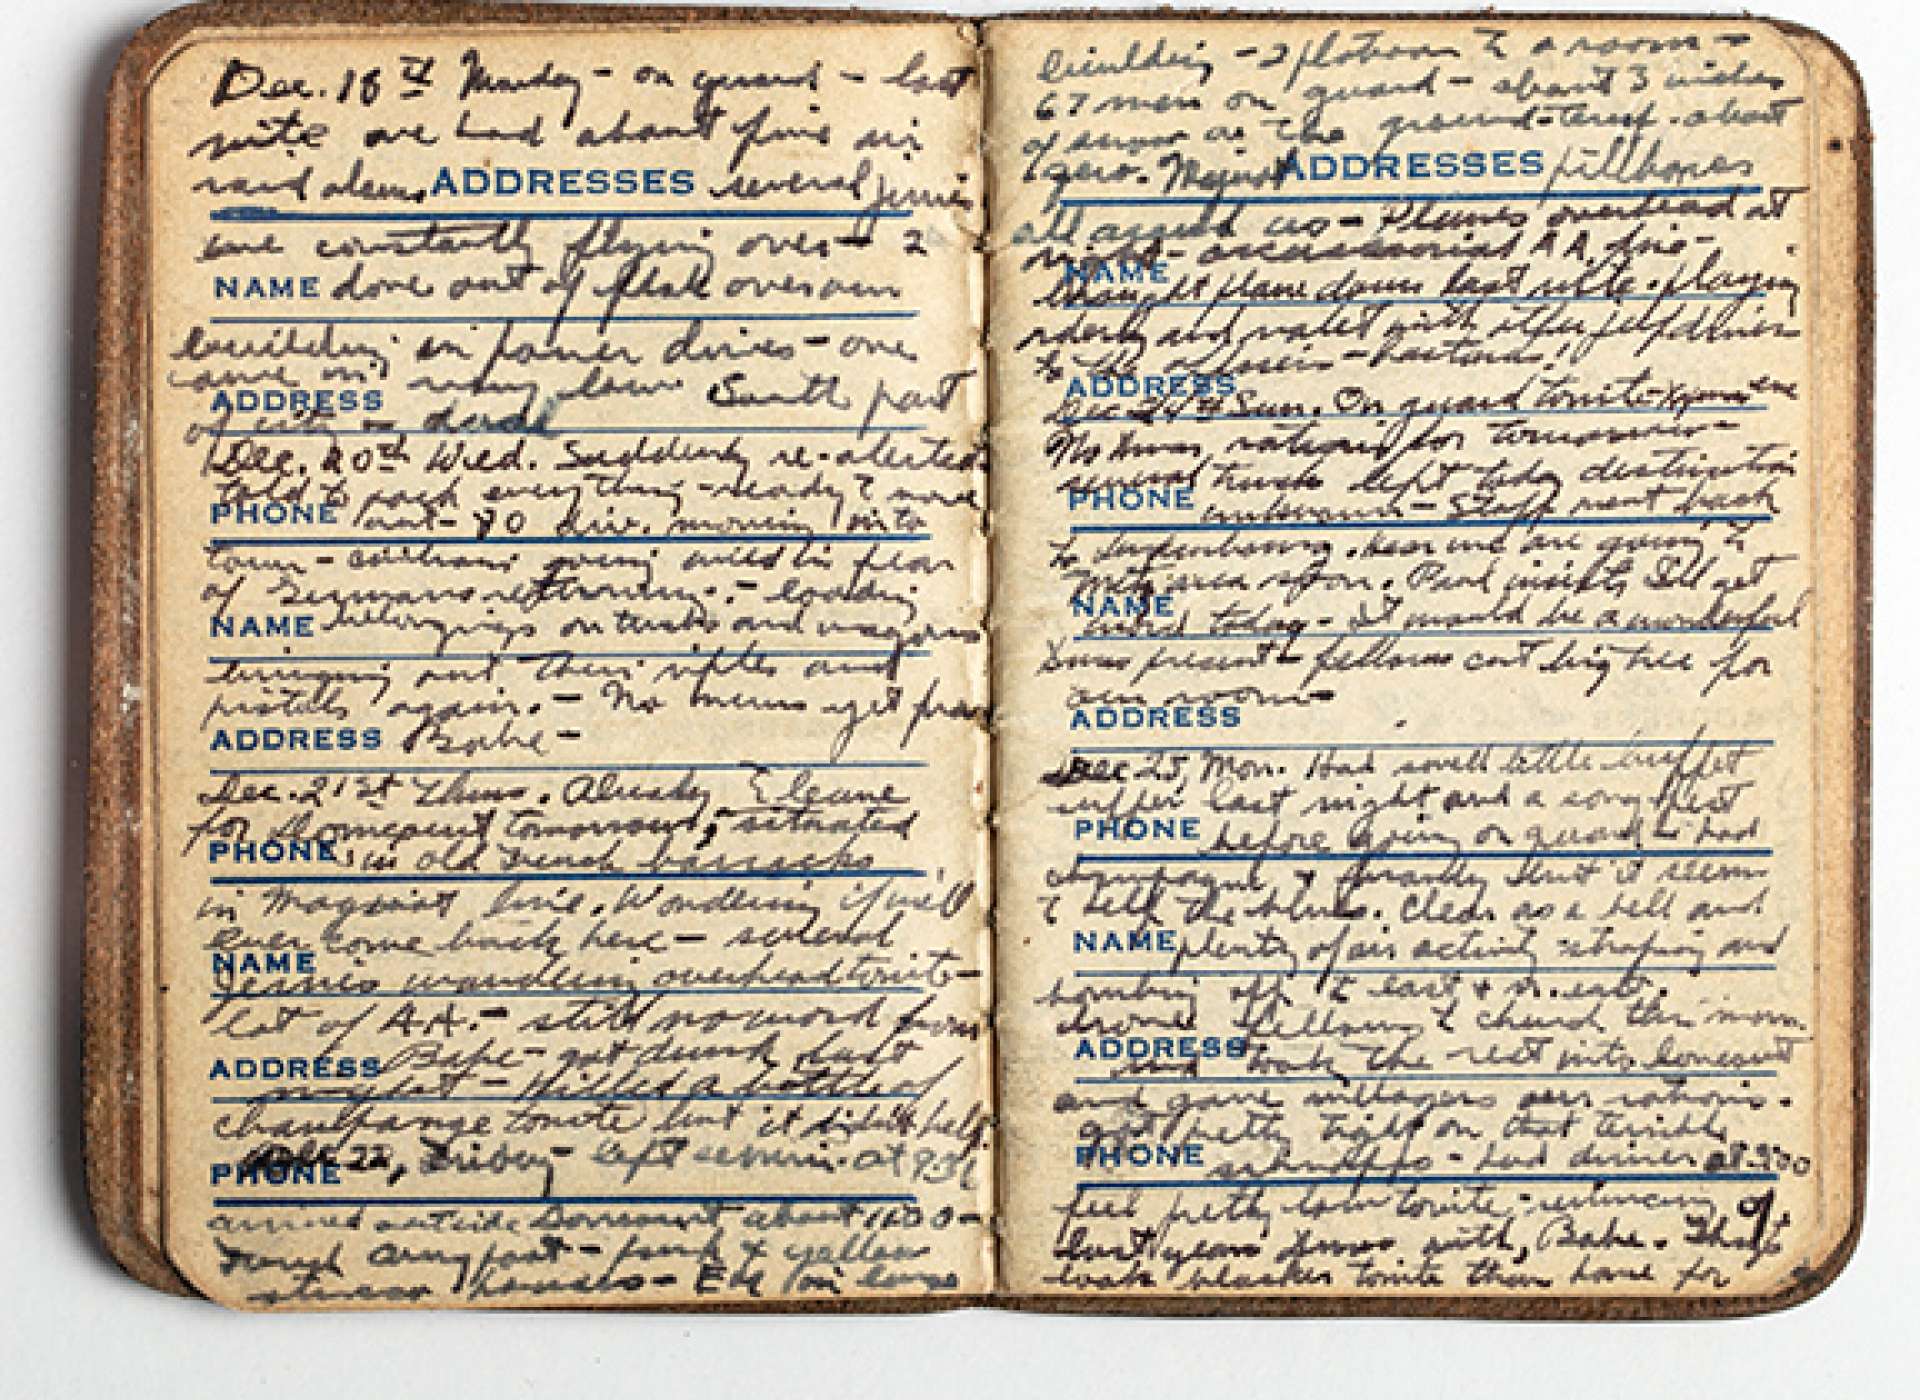 Dec. 18th Monday - on guard - last
nite we had about five air
raid alerts
ADDRESSES
several Jerries
are constantly flying over - 2
NAME
dove out of flak over our
building in power dives - one
came in very low South part
ADDRESS
of city -
Dec. 20th Wed. Suddenly re-alerted
told to pack everything - ready to move
PHONE
out - 80 div. moving into
town - civilians going wild in fear
of Germans returning. - loading
NAME
belongings on trucks and wagons
bringing out their rifles and
pistols again. - No news yet from
ADDRESS
Babe -
Dec. 21st Thurs. Already to leave
for tomorrow, situated
PHONE
in old French barracks
in Maginot line. Wondering if we'll
ever come back here - several
NAME
Jerries wandering overhead tonite -
lot of A.A. - still no word from
ADDRESS
Babe - got drunk last
night - Killed a bottle of
champange tonite but it didn't help.
Dec 22, Friday - left at 930
PHONE
arrived outside about 1100 -
French army post - pink & yellow
stucco houses - in large
building - 2 platoons to a room -
67 men on guard - about 3 inches
of snow on the ground - temp. about
zero. Maginot
ADDRESSES
pillboxes
all around us - Planes overhead at
night - occassional AA fire -
NAME
brought plane down last nite. playing
orderly and valet with jeep driver
to the officers - bastards!
ADDRESS
Dec 24th Sun. On guard tonite - Xmas eve
No Xmas rations for tomorrow -
several trucks left today destination
PHONE
unknown - Staff went back
to Luxembourg. Hear we are going to
Metz area soon. Paul insists I'll get
NAME
word today - it would be a wonderful
Xmas present - fellows cut big tree for
our room -
ADDRESS
Dec 25, Mon. Had swell little buffet
supper last night and a song fest
PHONE
before going on guard - had
champagne & brandy but it seems
to help the blues. Clear as a bell and
NAME
plenty of air activity strafing and
bombing off to east & n. east.
drove fellows to church this morn.
ADDRESS
and took the rest into
and gave villagers our rations.
got pretty tight on that terrible
PHONE
schnapps - had dinner at 3:00
feel pretty low tonite - reminiscing of
last years Xmas with Babe. Things
look blacker tonite than have for